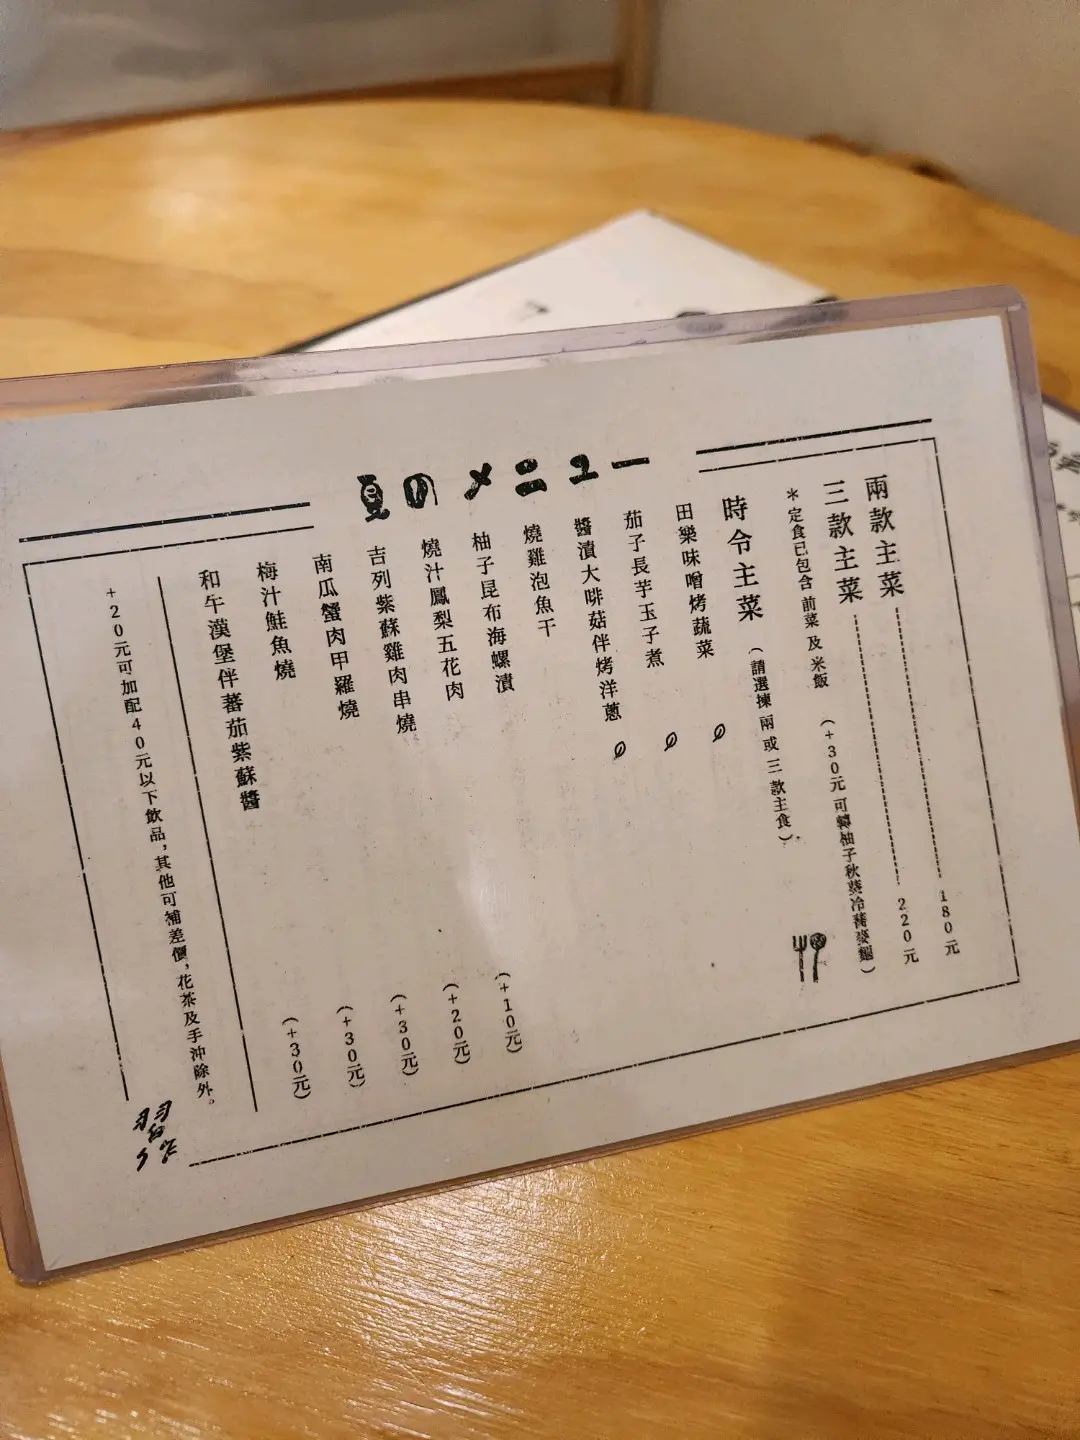 夏のメニュー
兩款主菜 180元
三款主菜 220元
＊定食已包含 前菜 及 米飯 (+30元 可轉柚子秋葵冷蕎麥麵)
時令主菜 (請選揀 兩 或 三 款主食)
田樂味噌烤蔬菜
茄子長芋玉子煮
醬漬大啡菇伴烤洋蔥
燒雞泡魚干
柚子昆布海螺漬
燒汁鳳梨五花肉 (+10元)
吉列紫蘇雞肉串燒 (+20元)
南瓜蟹肉甲羅燒 (+30元)
梅汁鮭魚燒 (+30元)
和牛漢堡伴蕃茄紫蘇醬 (+30元)
+20元可加配40元以下飲品，其他可補差價，花茶及手沖除外。